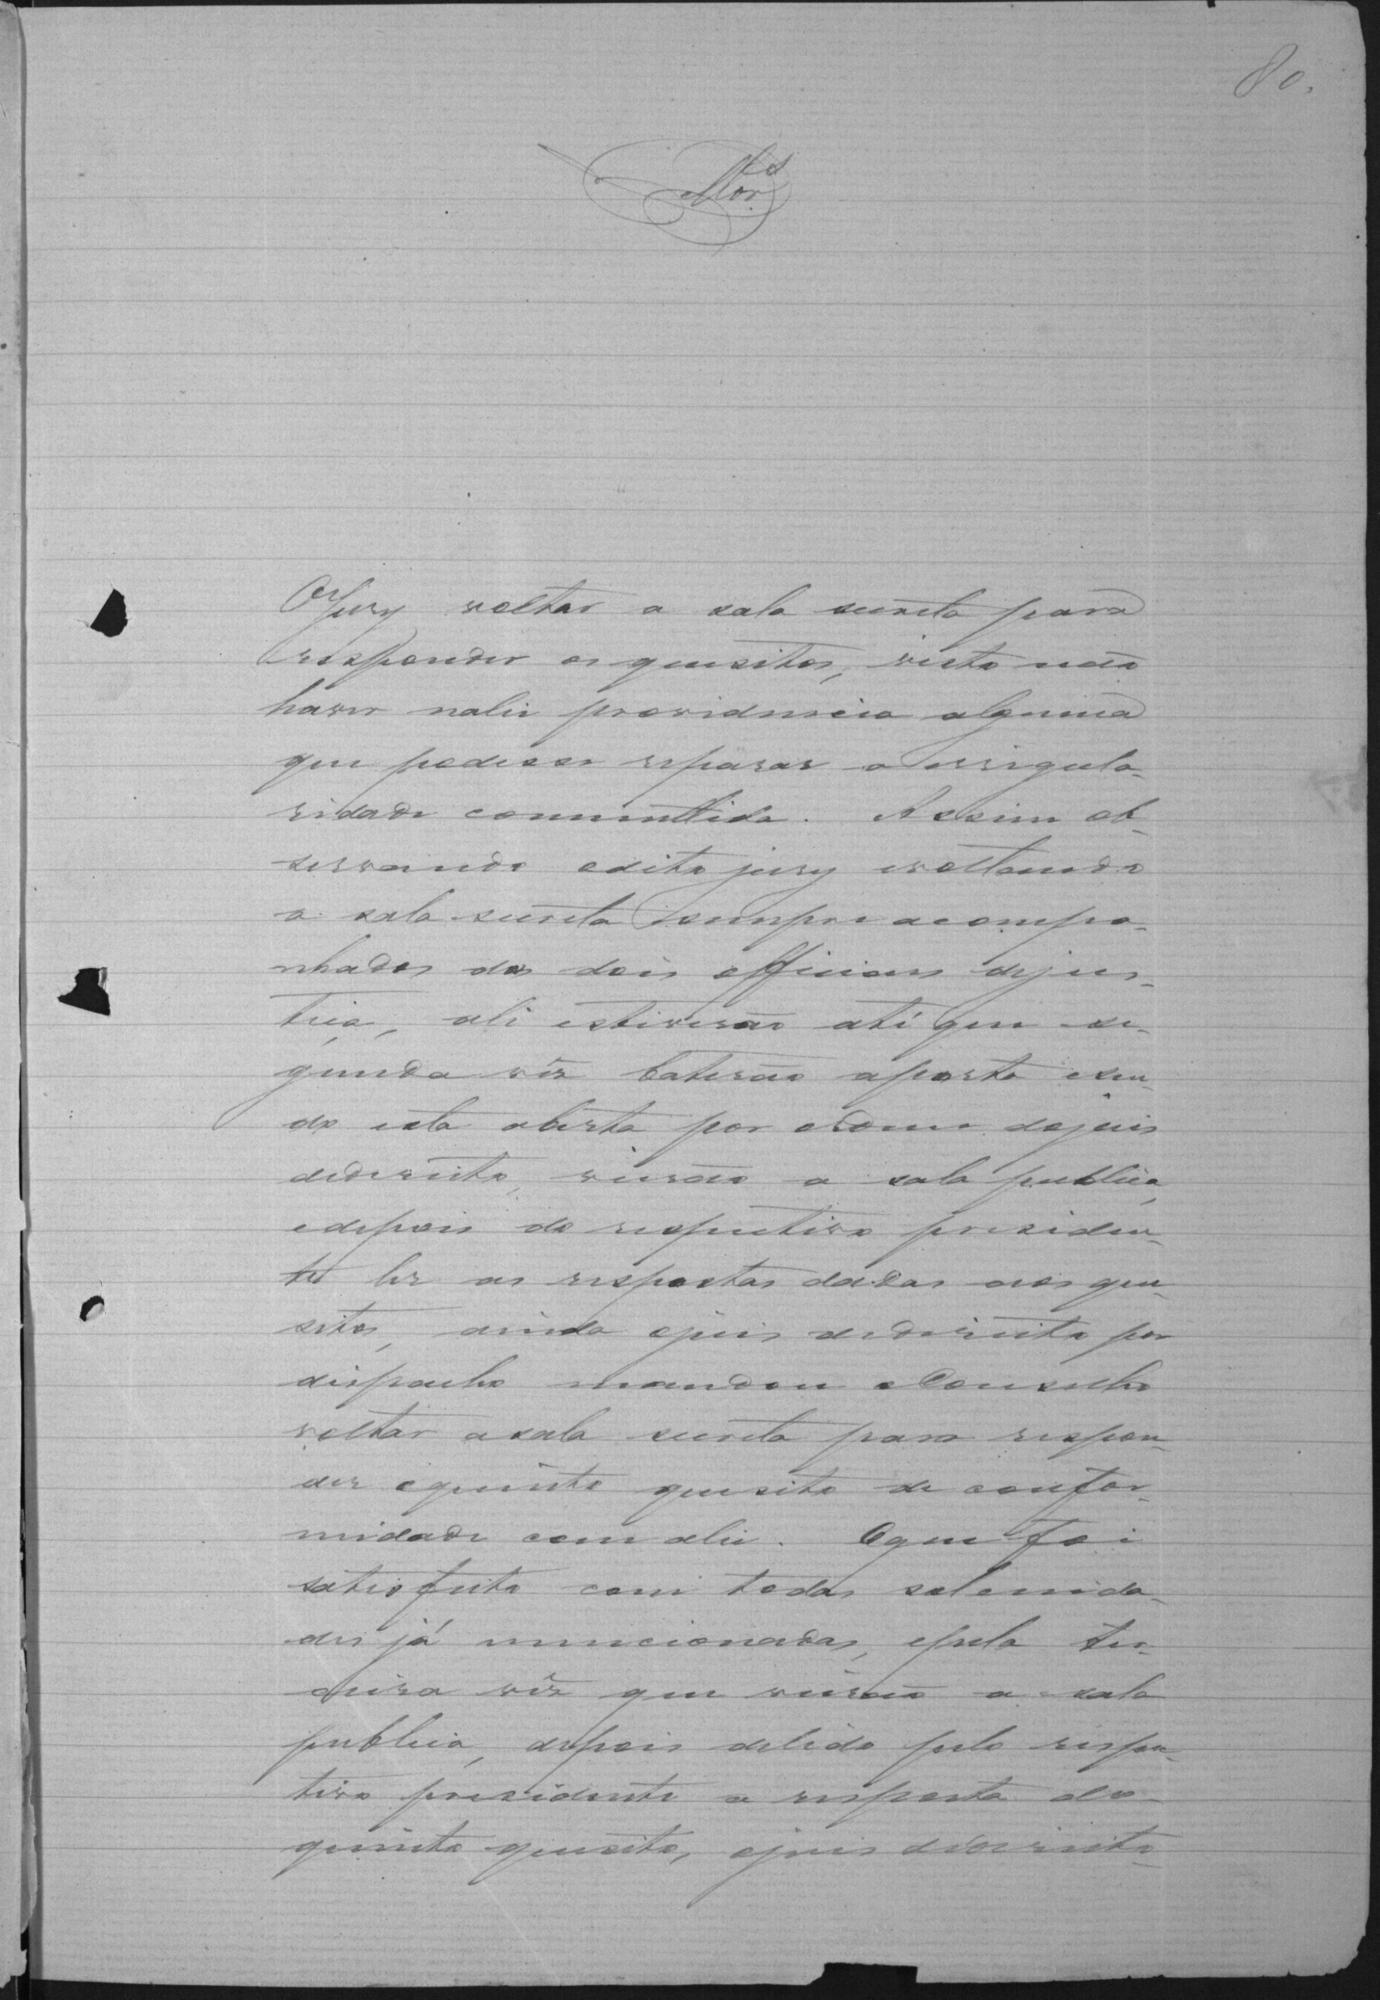 80.
Mor.es
O Jury voltar a sala secreta para
responder os quesitos, visto não
haver nalei providencia alguma
que podesse reparar a irrigula-
ridade committida. Assim ob-
servando odito jury evoltando
a sala secreta sempre acompa-
nhados dos dois officiaes dejus-
tiça, ali estiverão até que se-
gunda vêz baterão aporta esen-
do esta aberta por ordem dojuis
dedireito, vierão a sala publica,
edepois do respectivo presiden-
te ler as respostas dadas aos que-
sitos, ainda ojuis dedireito por
dispacho mandou oConselho
voltar asala secreta para respon-
der oquinto quesito de confor-
midade com alei. Oque foi
satisfeito com todas solemnida-
des já mencionadas, epela ter-
ceira vêz que vierão a sala
publica, depois delido pelo respec-
tivo presidente a resposta do
quinto quesito, ojuis dedireito